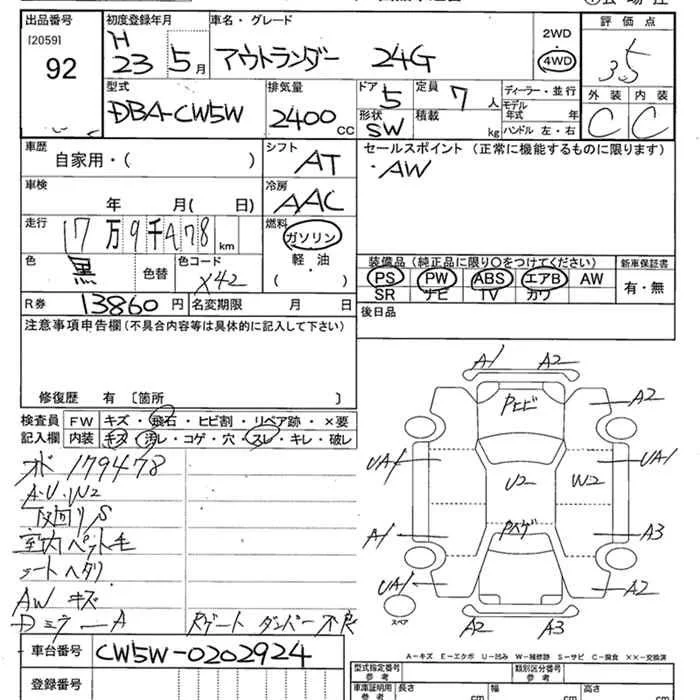 出品番号 初度登録年月 車名・グレード 評価点
[2059] 92 H 23 5月 アウトランダー 24G 2WD 4WD 3.5
型式 DBA-CW5W 排気量 2400 CC ドア 5 定員 7人 ディーラー・並行 外装 内装
形状 SW 積載 kg モデル年式 年 ハンドル 左・右 C C
車歴 自家用・( ) シフト AT セールスポイント(正常に機能するものに限ります)
・AW
車検 年 月( 日) 冷房 AAC
走行 17万9千478 km 燃料 ガソリン
軽・油
( )
色 黒 色替 色コード X42
装備品(純正品に限り○をつけてください) 新車保証書
PS PW ABS エアB AW 有・無
SR ナビ TV カワ
R券 13860円 名変期限 月 日 後日品
注意事項申告欄(不具合内容等は具体的に記入して下さい)
修復歴 有〔箇所 〕
検査員 FW キズ・飛石・ヒビ割・リペア跡・×要
記入欄 内装 キズ・汚レ・コゲ・穴・スレ・キレ・破レ
メ 179478
A・U・W2
下回り S
室内 ペット毛
シート ヘタリ
AW キズ
Dミラー A Rゲート ダンパー不良
A1 A2
Pヒビ A2
UA1 UA1
U2 W2
A1 A3
UA1 A2
A2 A3
スペア
A-キズ E-エクボ U-凹み W-補修跡 S-サビ C-腐食 ××-交換済
車台番号 CW5W-0202924
登録番号
型式指定番号 参考 類別区分番号 参考
車庫証明用 参考 長さ cm 幅 cm 高さ cm